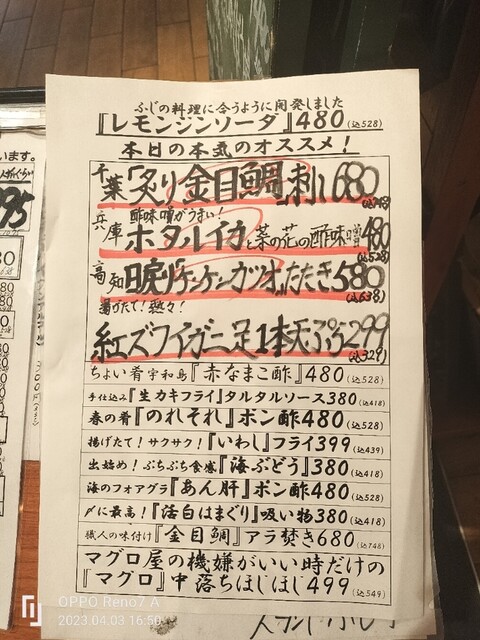 ふじの料理に合うように開発しました
『レモンジンソーダ』480(込528)
本日の本気のオススメ！
千葉「炙り金目鯛」刺し680
酢味噌がうまい！
兵庫 ホタルイカと菜の花の酢味噌480(込528)
高知 日戻りケンケンカツオ たたき580(込638)
揚げたて！熱々！
紅ズワイガニ足1本天ぷら299(込329)
ちょい肴宇和島『赤なまこ酢』480(込528)
手仕込み『生カキフライ』タルタルソース380(込418)
春の肴『のれそれ』ポン酢480(込528)
揚げたて！サクサク！『いわし』フライ399(込439)
出始め！ぷちぷち食感『海ぶどう』380(込418)
海のフォアグラ『あん肝』ポン酢480(込528)
〆に最高！『活白はまぐり』吸い物380(込418)
職人の味付け『金目鯛』アラ焚き680(込748)
マグロ屋の機嫌がいい時だけの
『マグロ』中落ちほじほじ499(込549)
OPPO Reno7 A
2023.04.03 16:50
います。
95